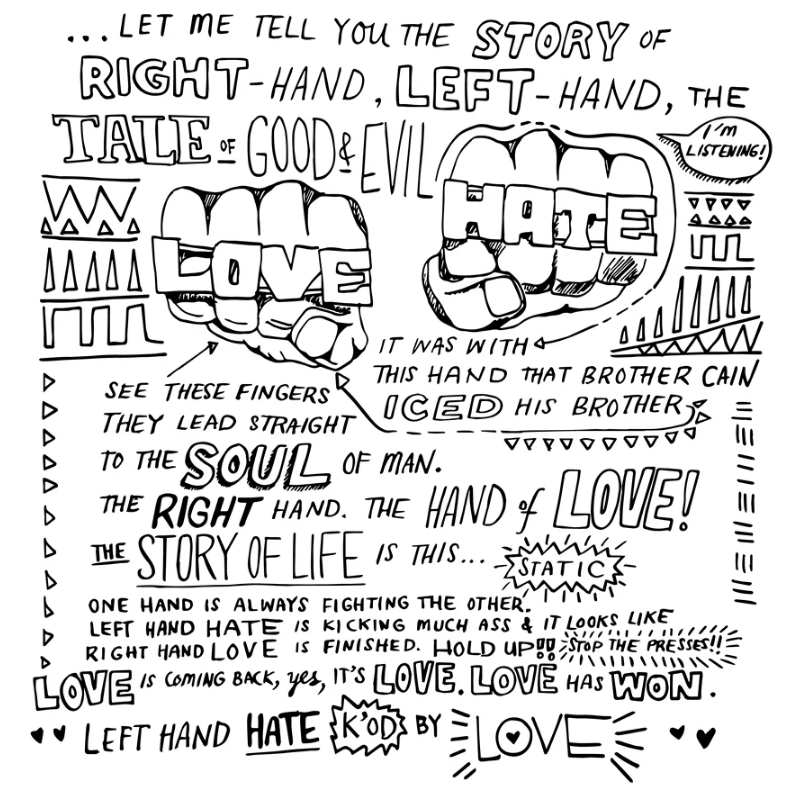 ...LET ME TELL YOU THE STORY OF
RIGHT-HAND, LEFT-HAND, THE
TALE OF GOOD & EVIL
I'm LISTENING!
LOVE
HATE
IT WAS WITH
THIS HAND THAT BROTHER CAIN
ICED HIS BROTHER
SEE THESE FINGERS
THEY LEAD STRAIGHT
TO THE SOUL OF MAN.
THE RIGHT HAND. THE HAND of LOVE!
THE STORY OF LIFE IS THIS...
STATIC
ONE HAND IS ALWAYS FIGHTING THE OTHER.
LEFT HAND HATE IS KICKING MUCH ASS & IT LOOKS LIKE
RIGHT HAND LOVE IS FINISHED. HOLD UP!! STOP THE PRESSES!!
LOVE IS COMING BACK, yes, IT'S LOVE. LOVE HAS WON.
LEFT HAND HATE K'OD BY LOVE